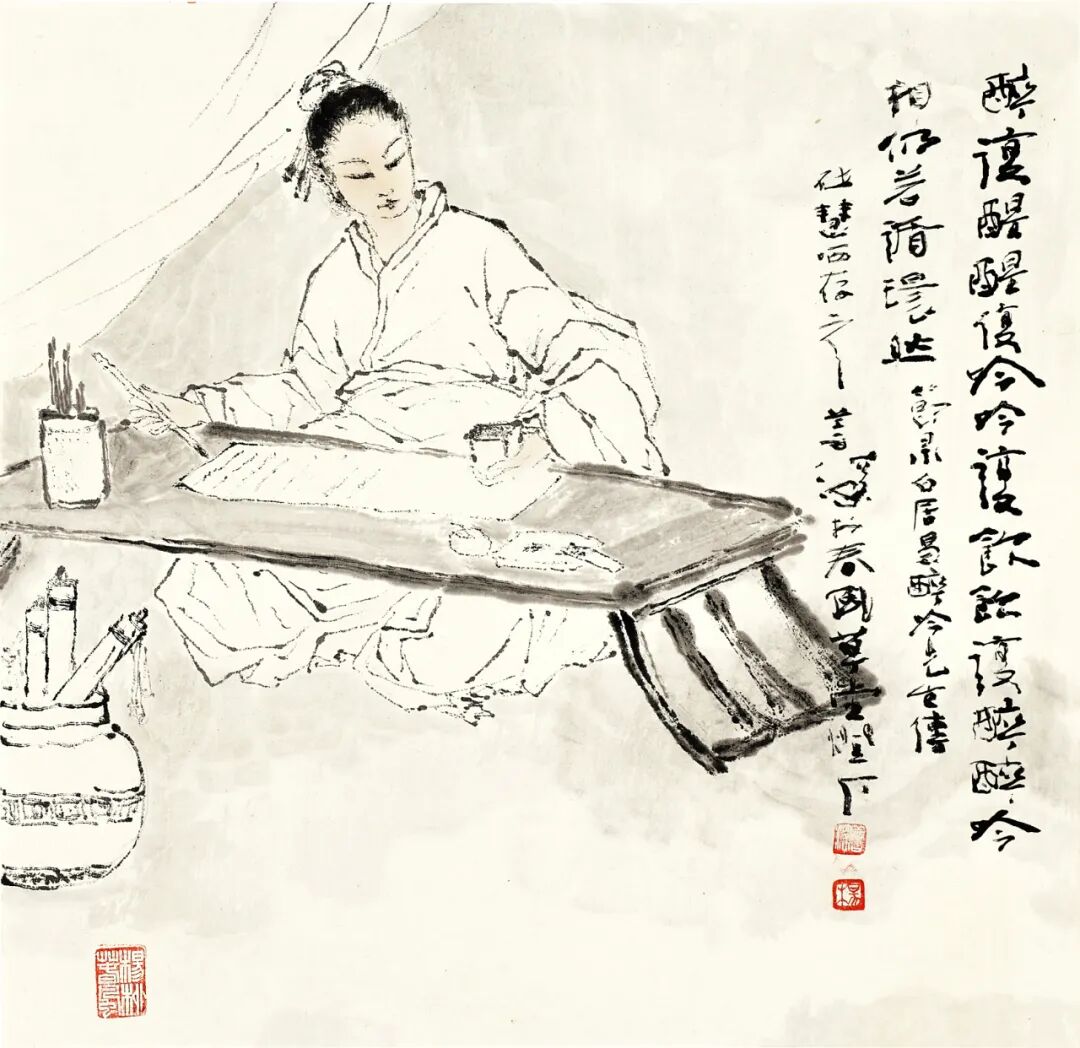 醉復醒醒復吟吟復飲飲復醉醉吟
相仍若循環然 節录白居易醉吟先生傳
慧哂存之 於春國草堂燈下
楊